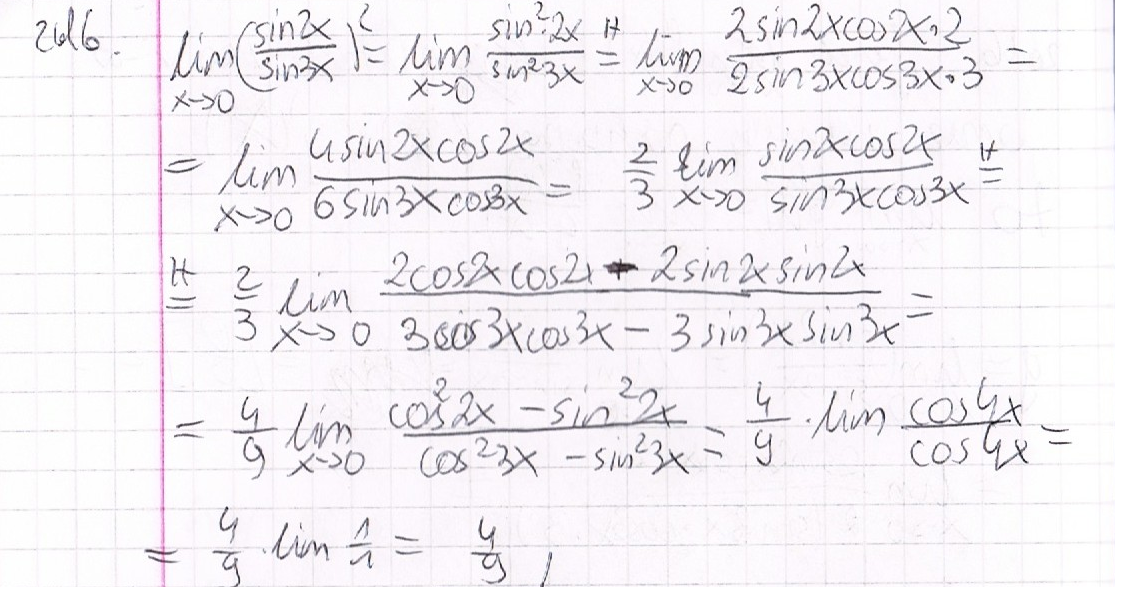 2416. lim x→0 (sin2x / sin3x)² = lim x→0 sin²2x / sin²3x =ᴴ lim x→0 2sin2xcos2x·2 / 2sin3xcos3x·3 =
= lim x→0 4sin2xcos2x / 6sin3xcos3x = 2/3 lim x→0 sin2xcos2x / sin3xcos3x =ᴴ
=ᴴ 2/3 lim x→0 2cos2xcos2x - 2sin2xsin2x / 3cos3xcos3x - 3sin3xsin3x =
= 4/9 lim x→0 cos²2x - sin²2x / cos²3x - sin²3x = 4/9 · lim cos4x / cos4x =
= 4/9 · lim 1/1 = 4/9 /